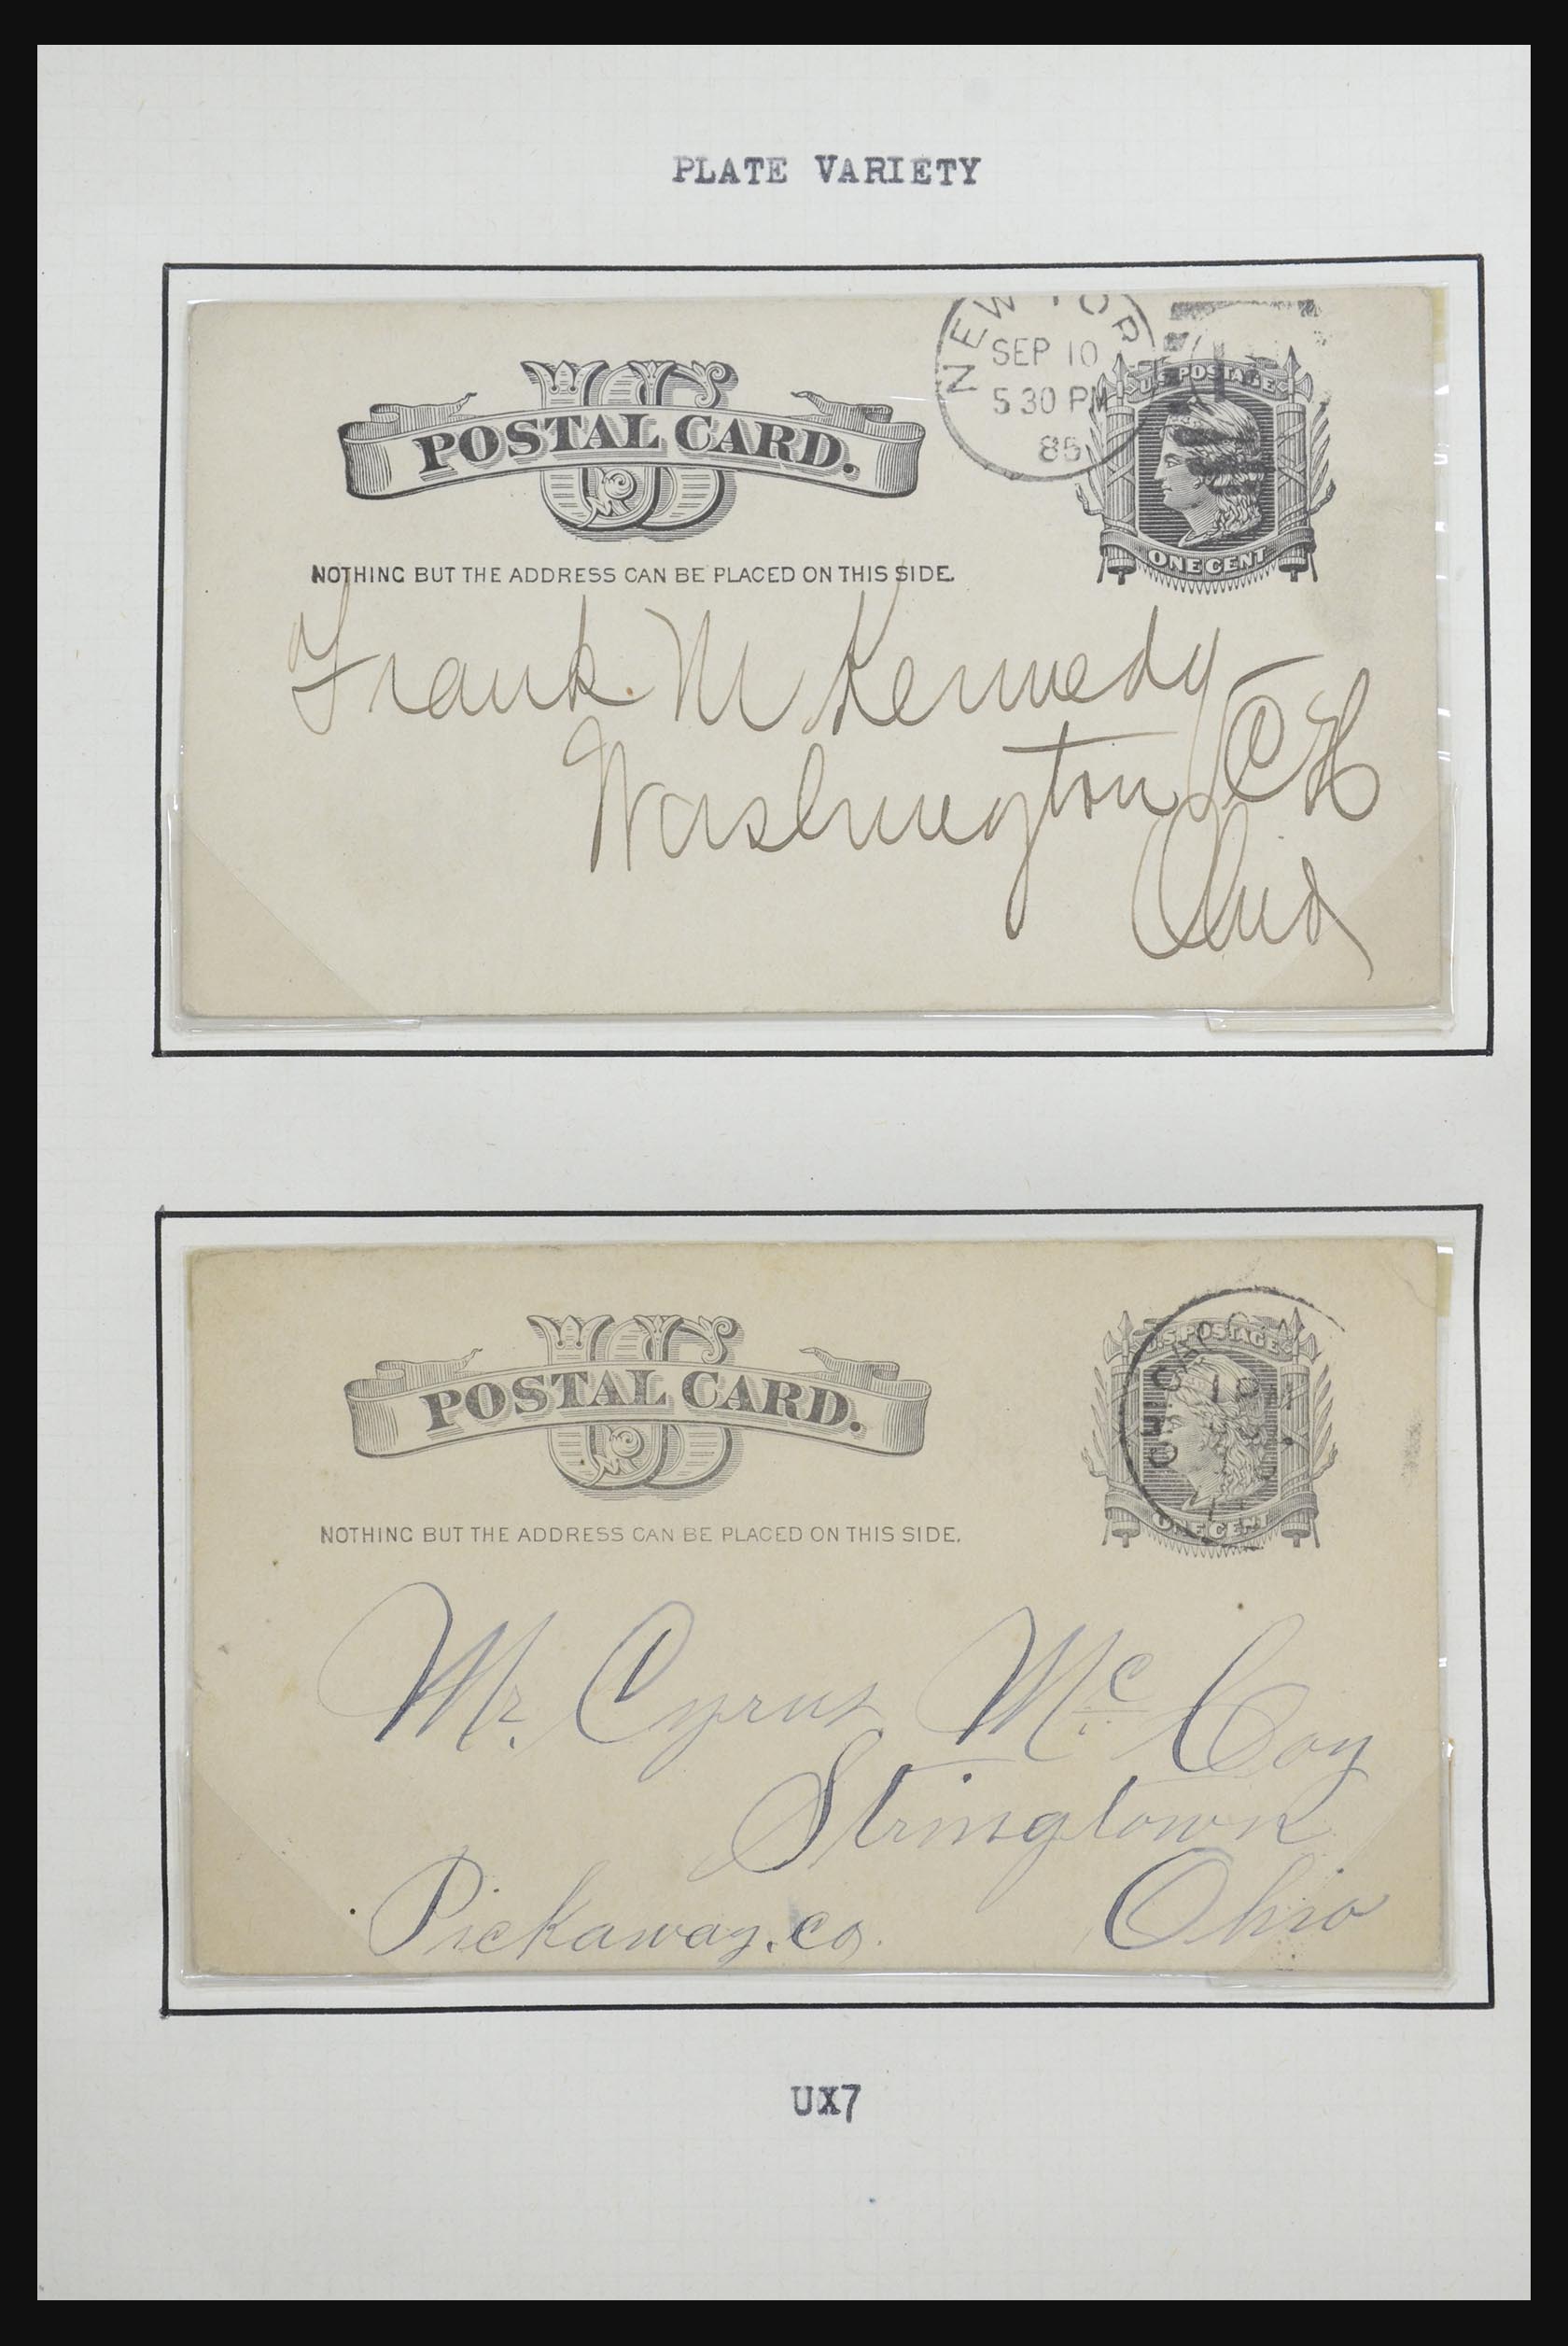 PLATE VARIETY
NEW YOR
SEP 10
5 30 PM
86
U.S. POSTAGE
US
POSTAL CARD.
ONE CENT
NOTHING BUT THE ADDRESS CAN BE PLACED ON THIS SIDE.
Frank M Kennedy
Washington C H
Ohio
U.S. POSTAGE
US
POSTAL CARD.
ONE CENT
NOTHING BUT THE ADDRESS CAN BE PLACED ON THIS SIDE.
Mr. Cyrus Mc Coy
Stringtown
Pickaway. co. Ohio
UX7